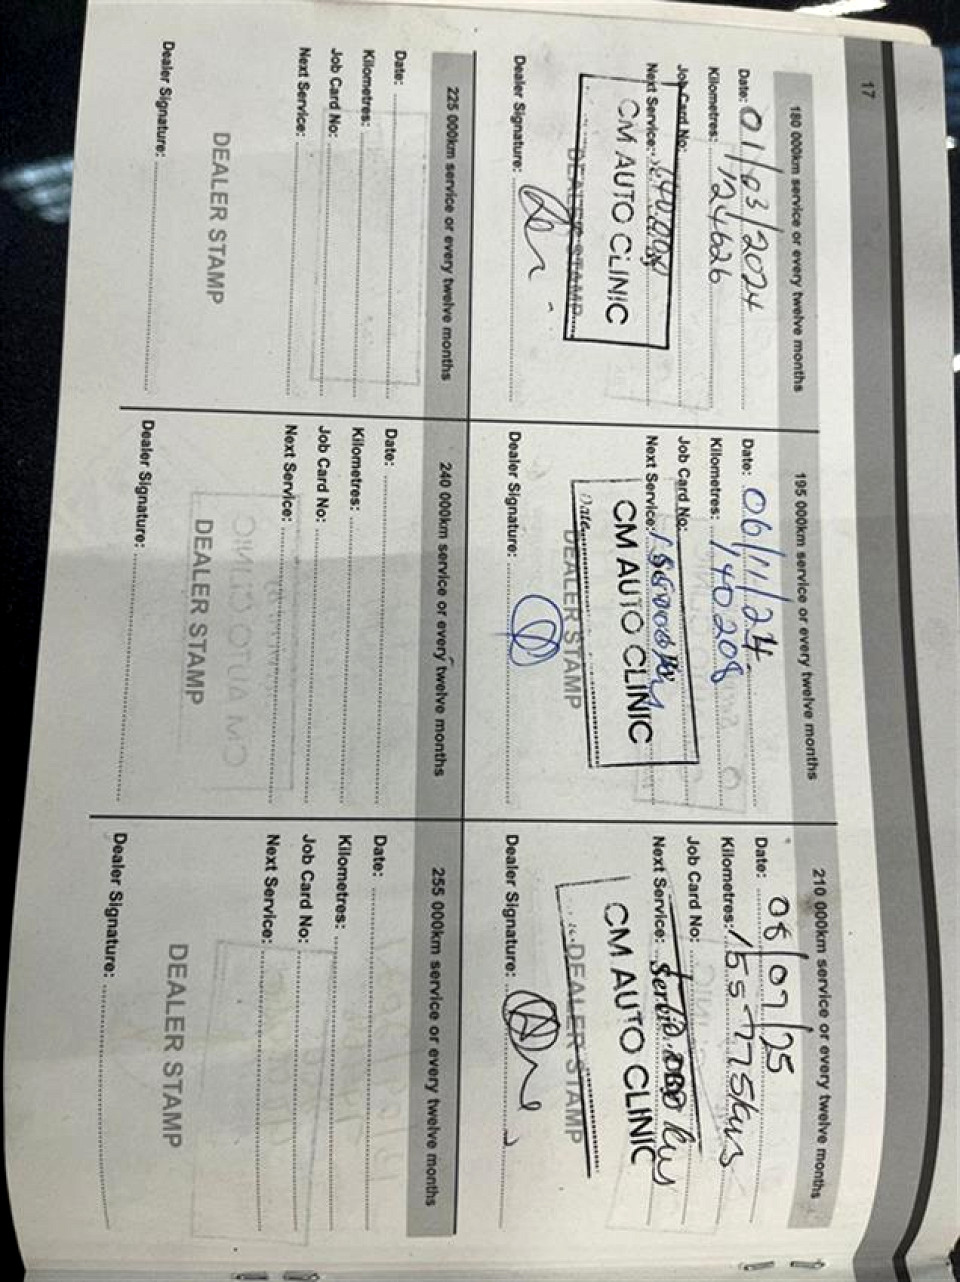 17
180 000km service or every twelve months
Date: 01/03/2024
Kilometres: 124626
Job Card No:
Next Service:
CM AUTO CLINIC
DEALER STAMP
Dealer Signature:
195 000km service or every twelve months
Date: 06/11/24
Kilometres: 140208
Job Card No:
Next Service:
CM AUTO CLINIC
Date
DEALER STAMP
Dealer Signature:
210 000km service or every twelve months
Date: 08/07/25
Kilometres: 155775kms
Job Card No:
Next Service:
CM AUTO CLINIC
DEALER STAMP
Dealer Signature:
225 000km service or every twelve months
Date:
Kilometres:
Job Card No:
Next Service:
DEALER STAMP
Dealer Signature:
240 000km service or every twelve months
Date:
Kilometres:
Job Card No:
Next Service:
DEALER STAMP
Dealer Signature:
255 000km service or every twelve months
Date:
Kilometres:
Job Card No:
Next Service:
DEALER STAMP
Dealer Signature: